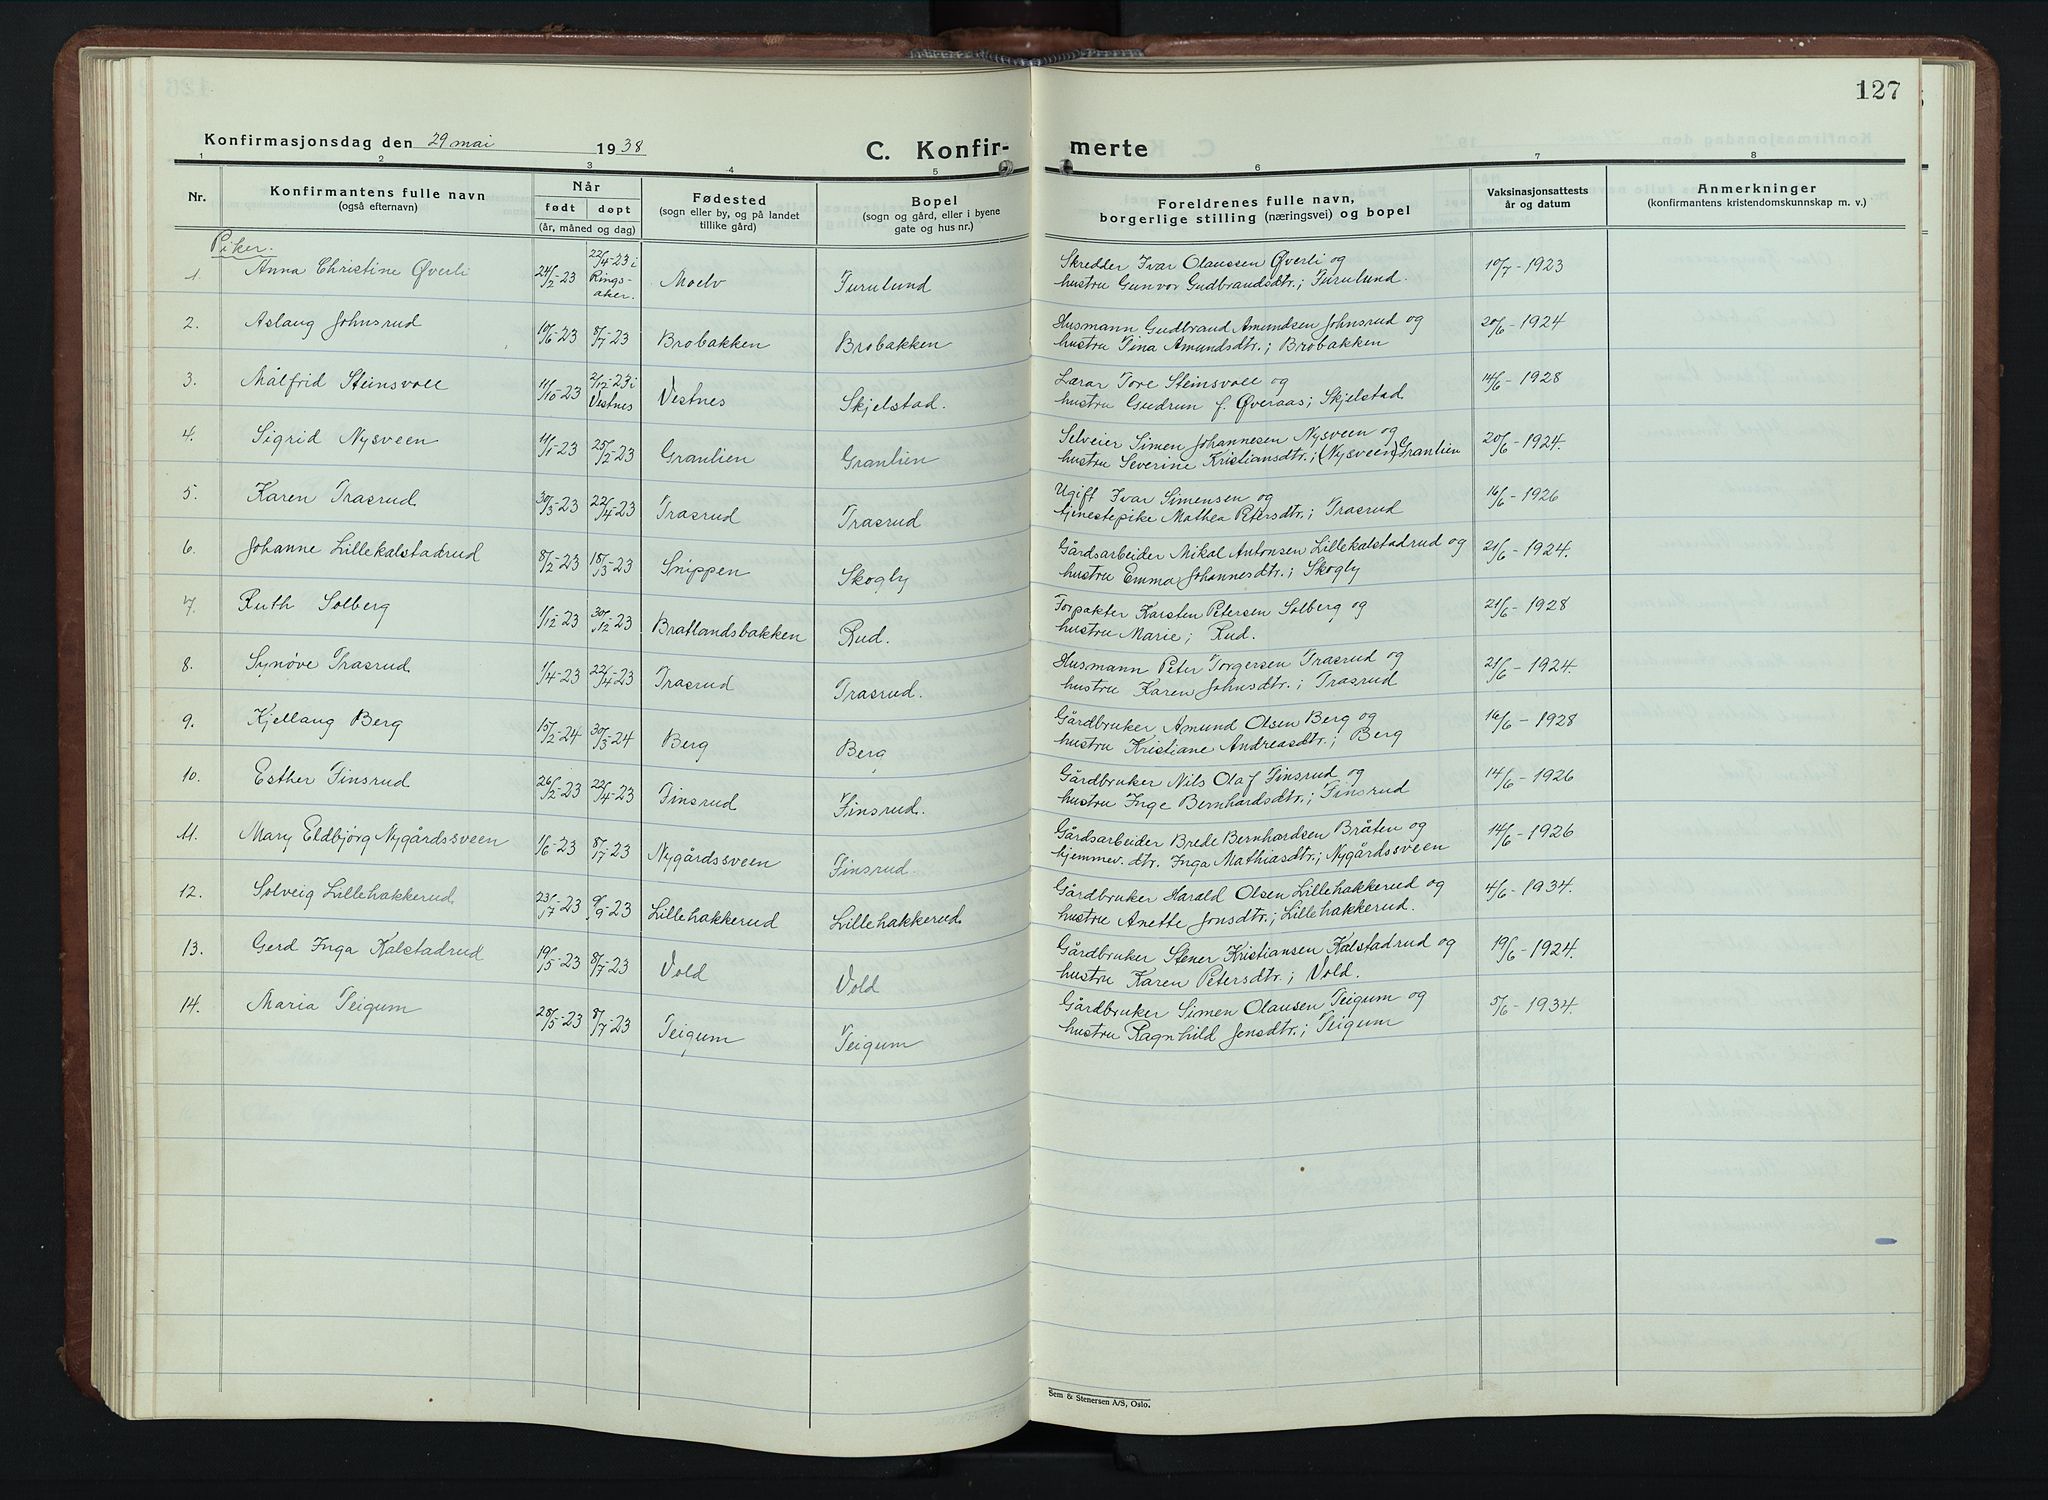 127
Konfirmasjonsdag den 29 mai 1938
C. Konfir- merte
1 2 3 4 5 6 7 8
Nr.
Konfirmantens fulle navn
(også efternavn)
Når
født døpt
(år, måned og dag)
Fødested
(sogn eller by, og på landet
tillike gård)
Bopel
(sogn og gård, eller i byene
gate og hus nr.)
Foreldrenes fulle navn,
borgerlige stilling (næringsvei) og bopel
Vaksinasjonsattests
år og datum
Anmerkninger
(konfirmantens kristendomskunnskap m. v.)
Piker.
1 Anna Christine Øverli 24/2-23 22/4-23 i Rings-aker. Moelv Furulund Skredder Ivar Olaussen Øverli og
hustru Gunvor Gudbrandsdtr.; Furulund. 10/7-1923
2. Aslaug Johnsrud 10/6-23 8/7-23 Brobakken Brobakken Husmann Gudbrand Amundsen Johnsrud og
hustru Tina Amundsdtr.; Brobakken 20/6-1924
3. Målfrid Steinsvoll 11/10-23 2/12-23 i Vestnes Vestnes Skjelstad. Lærar Tore Steinsvoll og
hustru Gudrun f. Øveraas; Skjelstad 14/6-1928
4. Sigrid Nysveen 11/1-23 25/2-23 Granlien Granlien Selveier Simen Johannesen Nysveen og
hustru Severine Kristiansdtr.; (Nysveen) Granlien 20/6-1924.
5. Karen Trasrud 30/3-23 22/4-23 Trasrud Trasrud Ugift Ivar Simensen og
tjenestepike Mathea Petersdtr.; Trasrud 16/6-1926
6. Johanne Lillekalstadrud 8/2-23 18/3-23 Snippen Skogly Gårdsarbeider Mikal Antonsen Lillekalstadrud og
hustru Emma Johannesdtr.; Skogly 21/6-1924.
7. Ruth Solberg 1/12-23 30/12-23 Bratlandsbakken Rud. Forpakter Karsten Petersen Solberg og
hustru Marie; Rud. 21/6-1928
8. Synøve Trasrud 1/4-23 22/4-23 Trasrud Trasrud. Husmann Peter Torgersen Trasrud og
hustru Karen Johnsdtr.; Trasrud 21/6-1924.
9. Kjellaug Berg 15/2-24 30/3-24 Berg Berg Gårdbruker Amund Olsen Berg og
hustru Kristiane Andreasdtr.; Berg 16/6-1928
10. Esther Finsrud 26/2-23 22/4-23 Finsrud Finsrud. Gårdbruker Nils Olaf Finsrud og
hustru Inge Bernhardsdtr.; Finsrud 14/6-1926
11. Mary Eldbjørg Nygårdssveen 1/6-23 8/7-23 Nygårdssveen Finsrud. Gårdsarbeider Brede Bernhardsen Bråten og
hjemmev. dtr. Inga Mathiasdtr.; Nygårdssveen 14/6-1926
12. Solveig Lillehakkerud 23/7-23 9/9-23 Lillehakkerud Lillehakkerud. Gårdbruker Harald Olsen Lillehakkerud og
hustru Anette Jonsdtr.; Lillehakkerud. 4/6-1934.
13. Gerd Inga Kalstadrud 19/5-23 8/7-23 Vold Vold Gårdbruker Stener Kristiansen Kalstadrud og
hustru Karen Petersdtr.; Vold. 19/6-1924.
14. Maria Teigum 28/5-23 8/7-23 Teigum Teigum Gårdbruker Simen Olausen Teigum og
hustru Ragnhild Jensdtr.; Teigum 5/6-1934.
Sem & Stenersen A/S, Oslo.